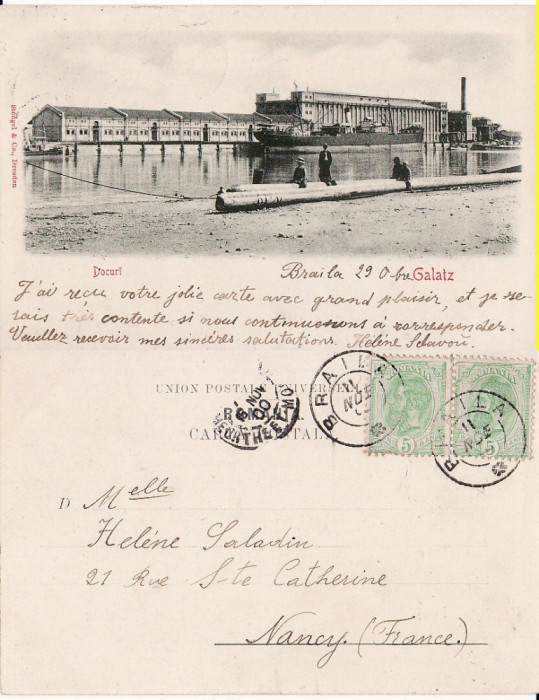 Stengel & Co., Dresden
Docuri
Braila 29 O-bre Galatz
J'ai reçu votre jolie carte avec grand plaisir, et je se-
rais très contente si nous continuerons à correspondre.
Veuillez recevoir mes sincères salutations. Hélène
UNION POSTALE UNIVERSELLE
ROMANIA
CARTA POSTALA
BRAILA
11 NOE
BRAILA
11 NOE
ROMANIA
5
5
NOV.
00
D Melle
Heléne Saladin
21 Rue S-te Catherine
Nancy. (France.)